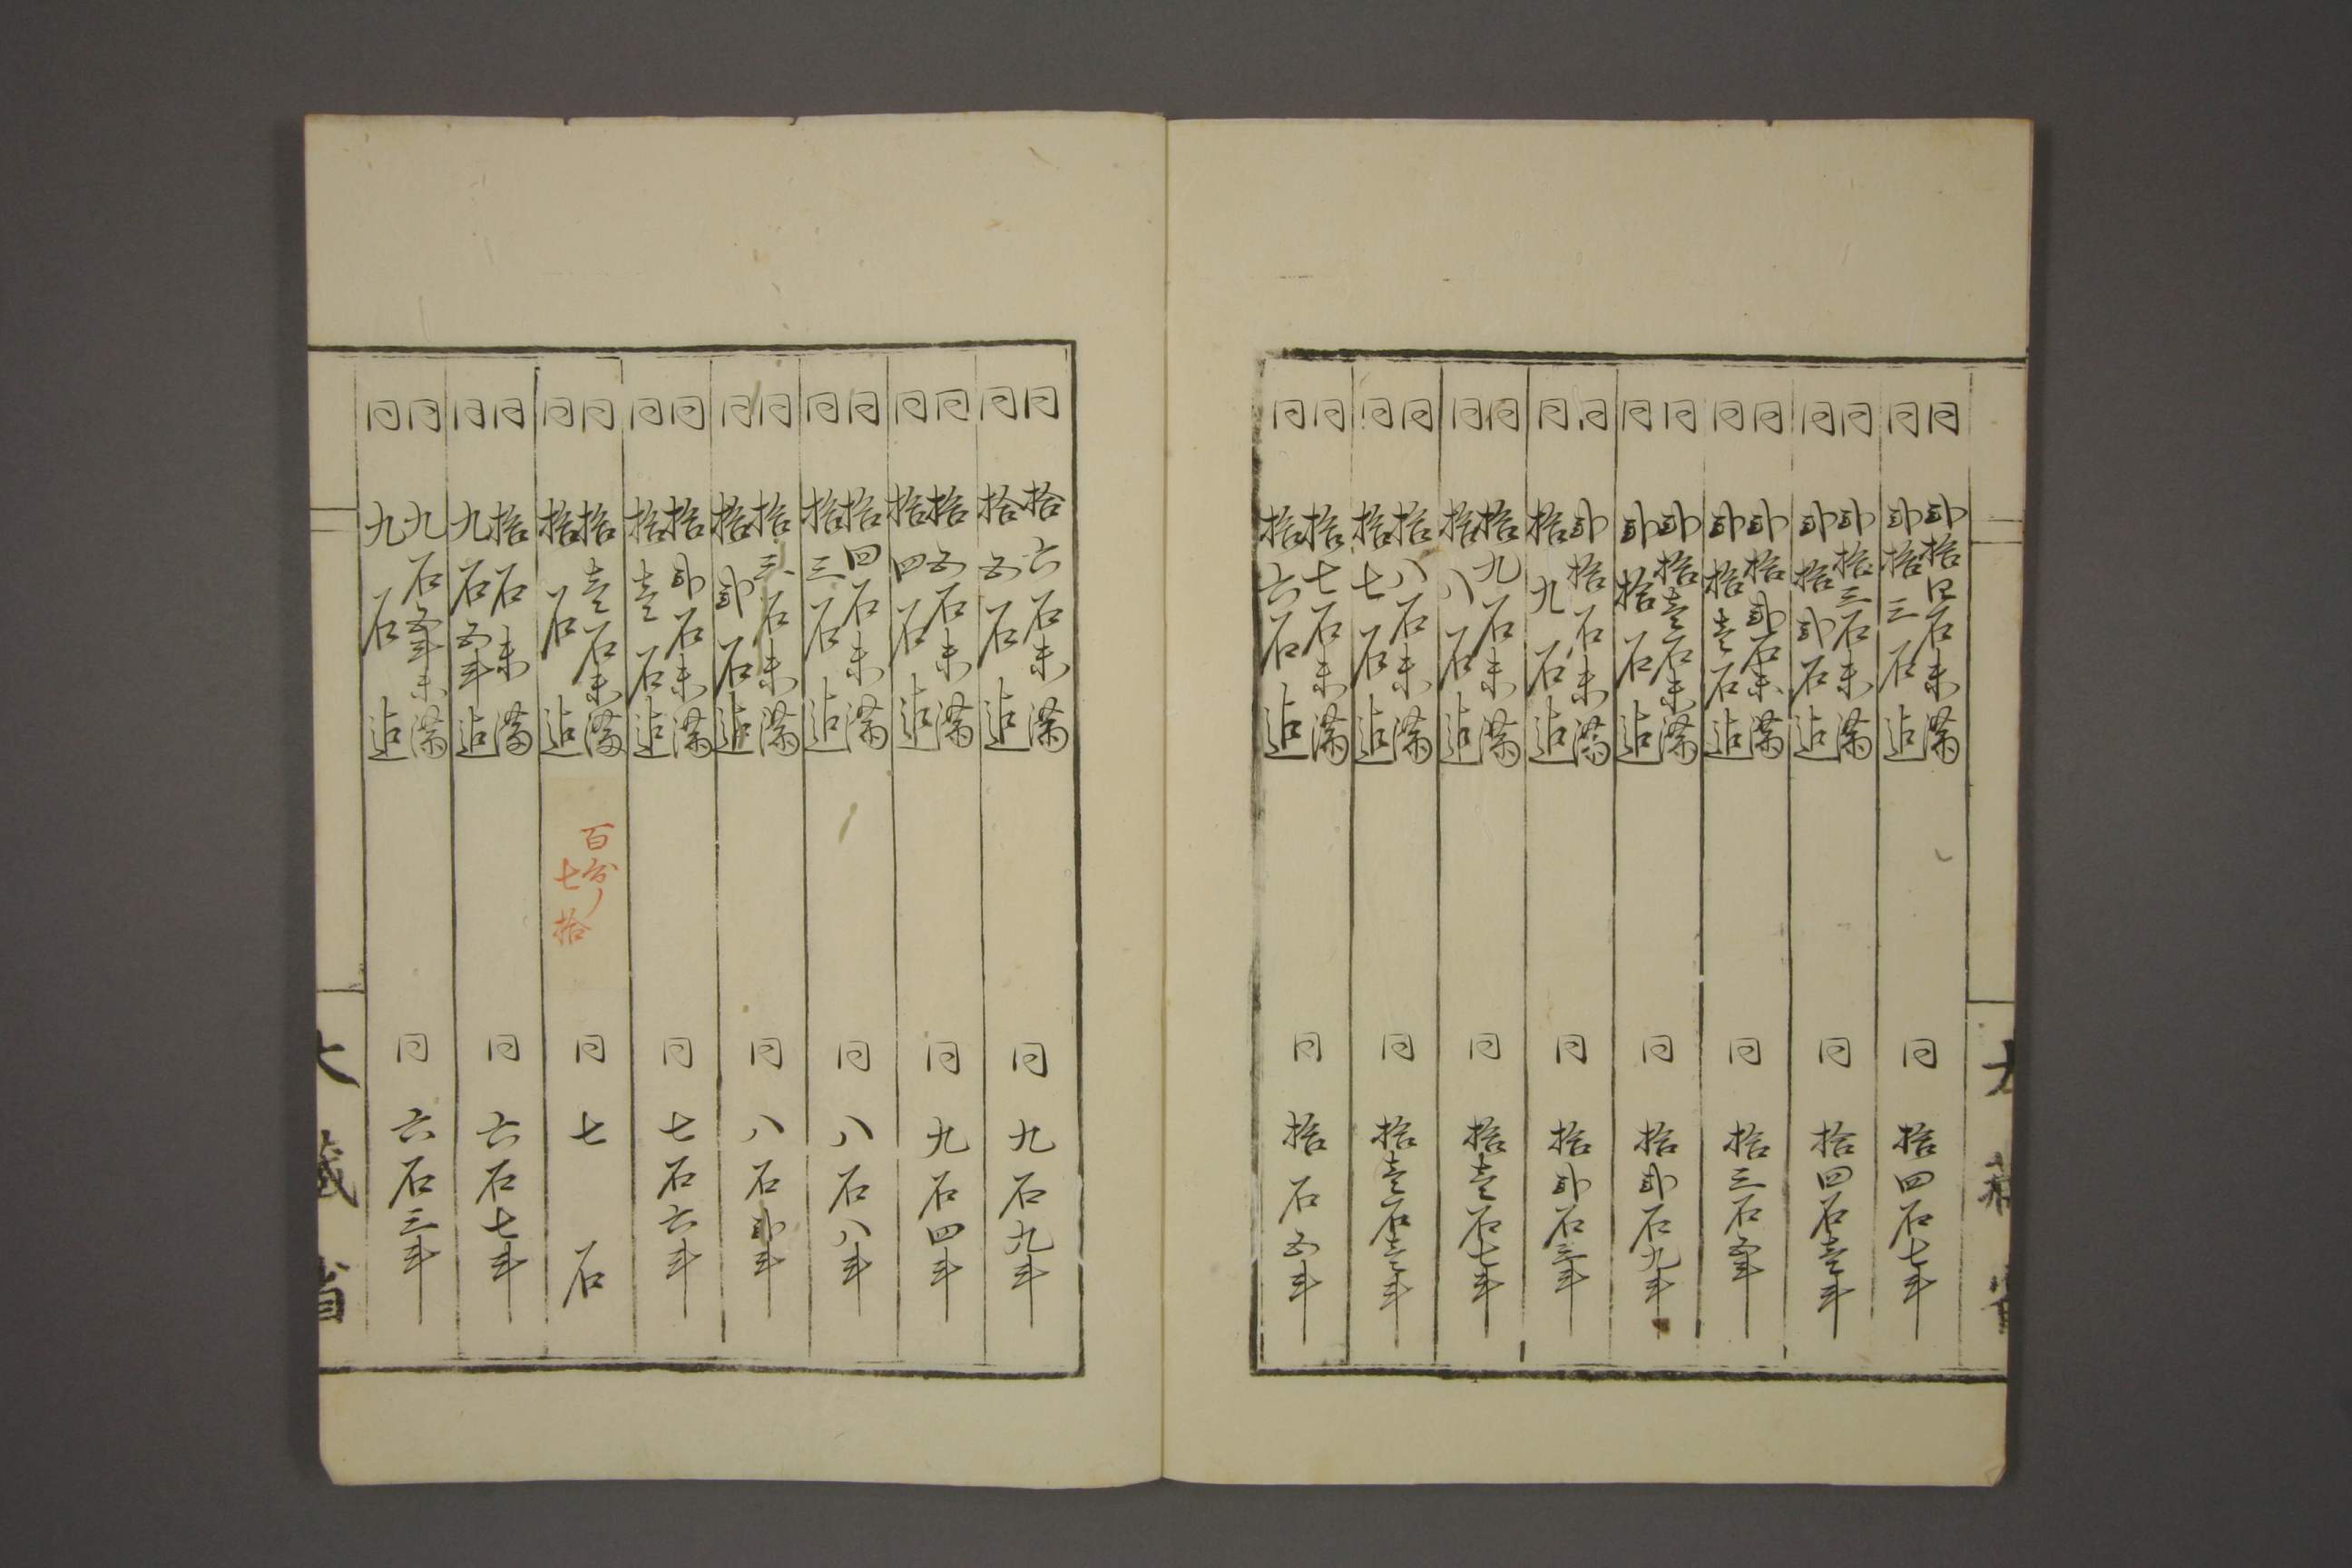 大蔵省
同 弐拾四石未満
同 弐拾三石迄
同 拾四石七斗
同 弐拾三石未満
同 弐拾弐石迄
同 拾四石壱斗
同 弐拾弐石未満
同 弐拾壱石迄
同 拾三石五斗
同 弐拾壱石未満
同 弐拾石迄
同 拾弐石九斗
同 弐拾石未満
同 拾九石迄
同 拾弐石三斗
同 拾九石未満
同 拾八石迄
同 拾壱石七斗
同 拾八石未満
同 拾七石迄
同 拾壱石壱斗
同 拾七石未満
同 拾六石迄
同 拾石五斗
同 拾六石未満
同 拾五石迄
同 九石九斗
同 拾五石未満
同 拾四石迄
同 九石四斗
同 拾四石未満
同 拾三石迄
同 八石八斗
同 拾三石未満
同 拾弐石迄
同 八石弐斗
同 拾弐石未満
同 拾壱石迄
同 七石六斗
同 拾壱石未満
同 拾石迄
百分ノ
七拾
同 七石
同 拾石未満
同 九石五斗迄
同 六石七斗
同 九石五斗未満
同 九石迄
同 六石三斗
大蔵省